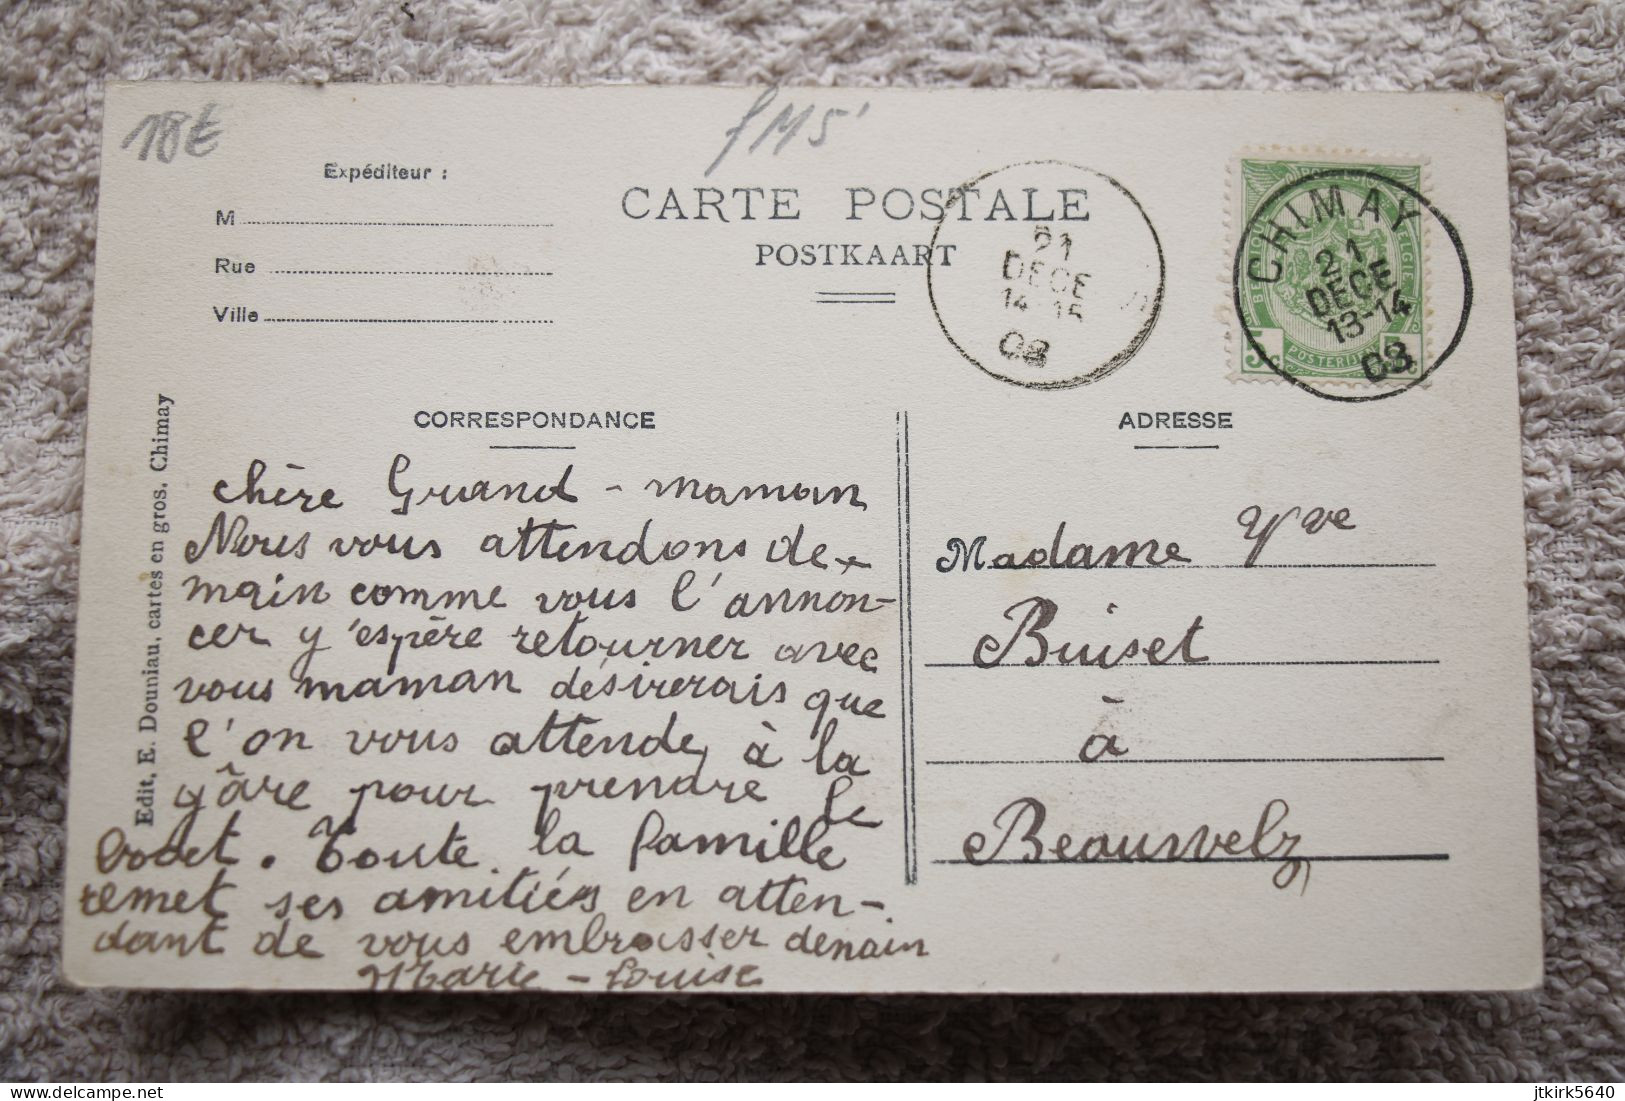 18€
fM5'
Expéditeur :
M
Rue
Ville
CARTE POSTALE
POSTKAART
21
DECE
14-15
08
CHIMAY
21
DECE
13-14
08
5c
POSTERIJEN
BELGIE
CORRESPONDANCE
ADRESSE
Edit. E. Douniau, cartes en gros, Chimay
chère Grand-maman
Nous vous attendons de-
main comme vous l'annon-
cer y'espère retourner avec
vous maman désirerais que
l'on vous attende, à la
gâre pour prendre le
. Toute la famille
remet ses amitiés en atten-
dant de vous embrasser demain
Marie-Louise
Madame Vve
Buiset
à
Beauwelz
Delcampe.net
jtkirk5640